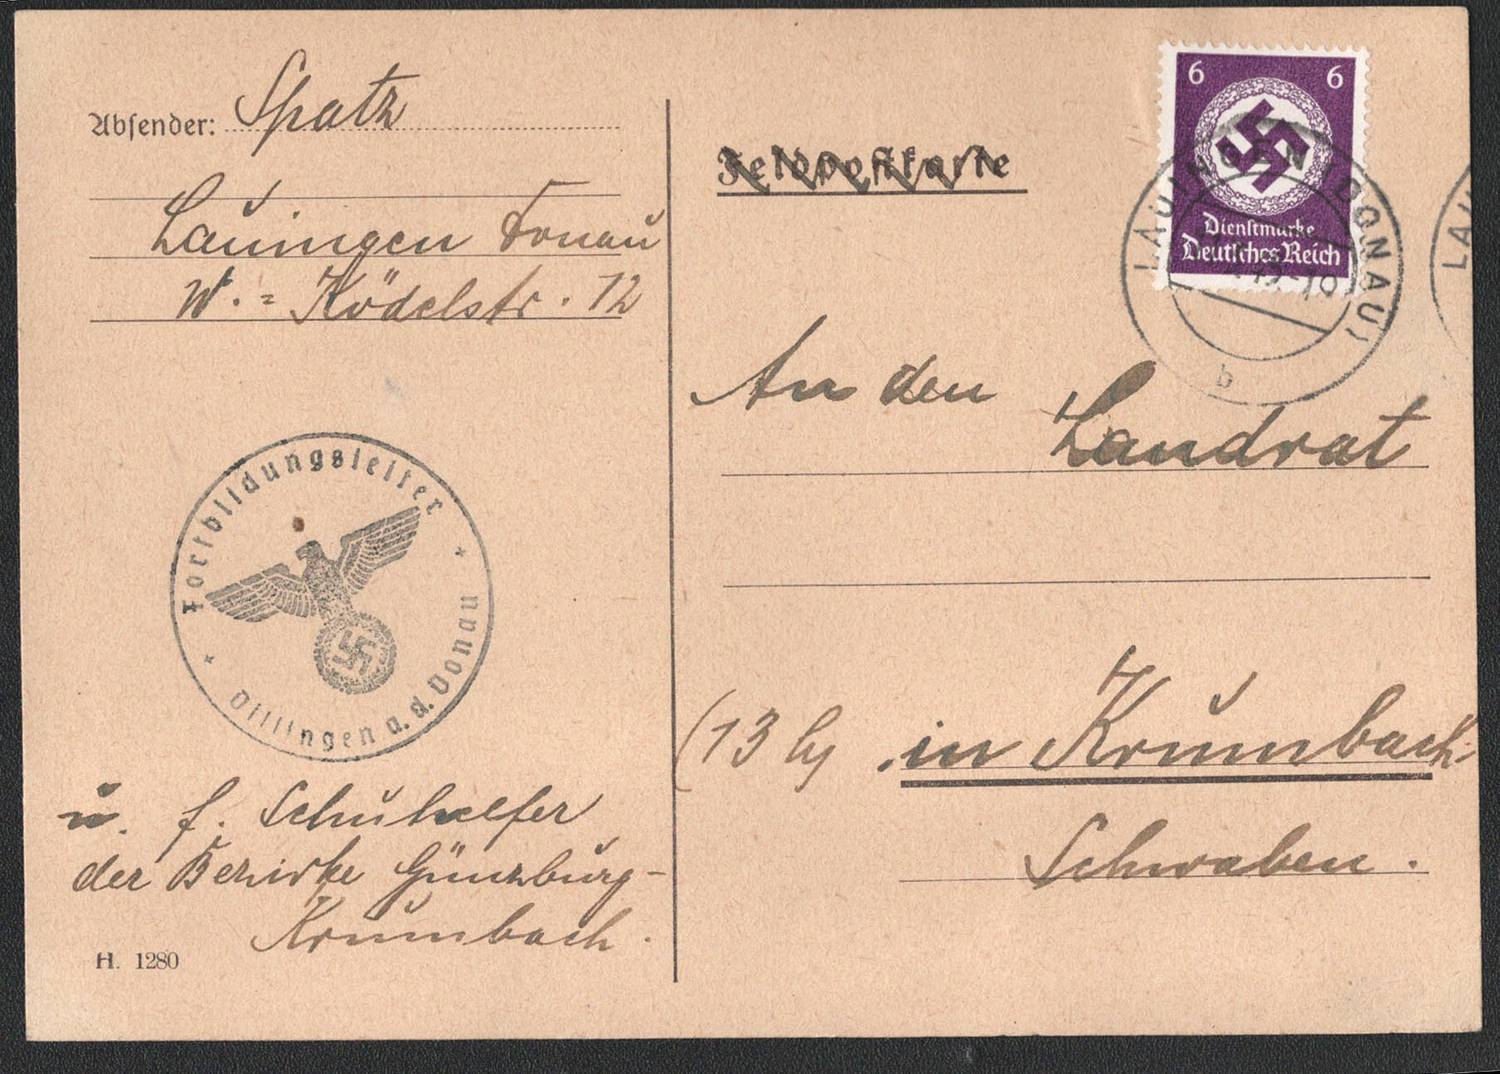 Absender: Spatz
Lauingen Donau
W.= Ködelstr. 12
Fortbildungsleiter
* Dillingen a. d. Donau *
u. f. Schulhelfer
der Bezirke Günzburg-
Krumbach.
H. 1280
Feldpostkarte
6 6
Dienstmarke
Deutsches Reich
LAUINGEN (DONAU)
b
An den
Landrat
(13 b) in Krumbach-
Schwaben.
LAU